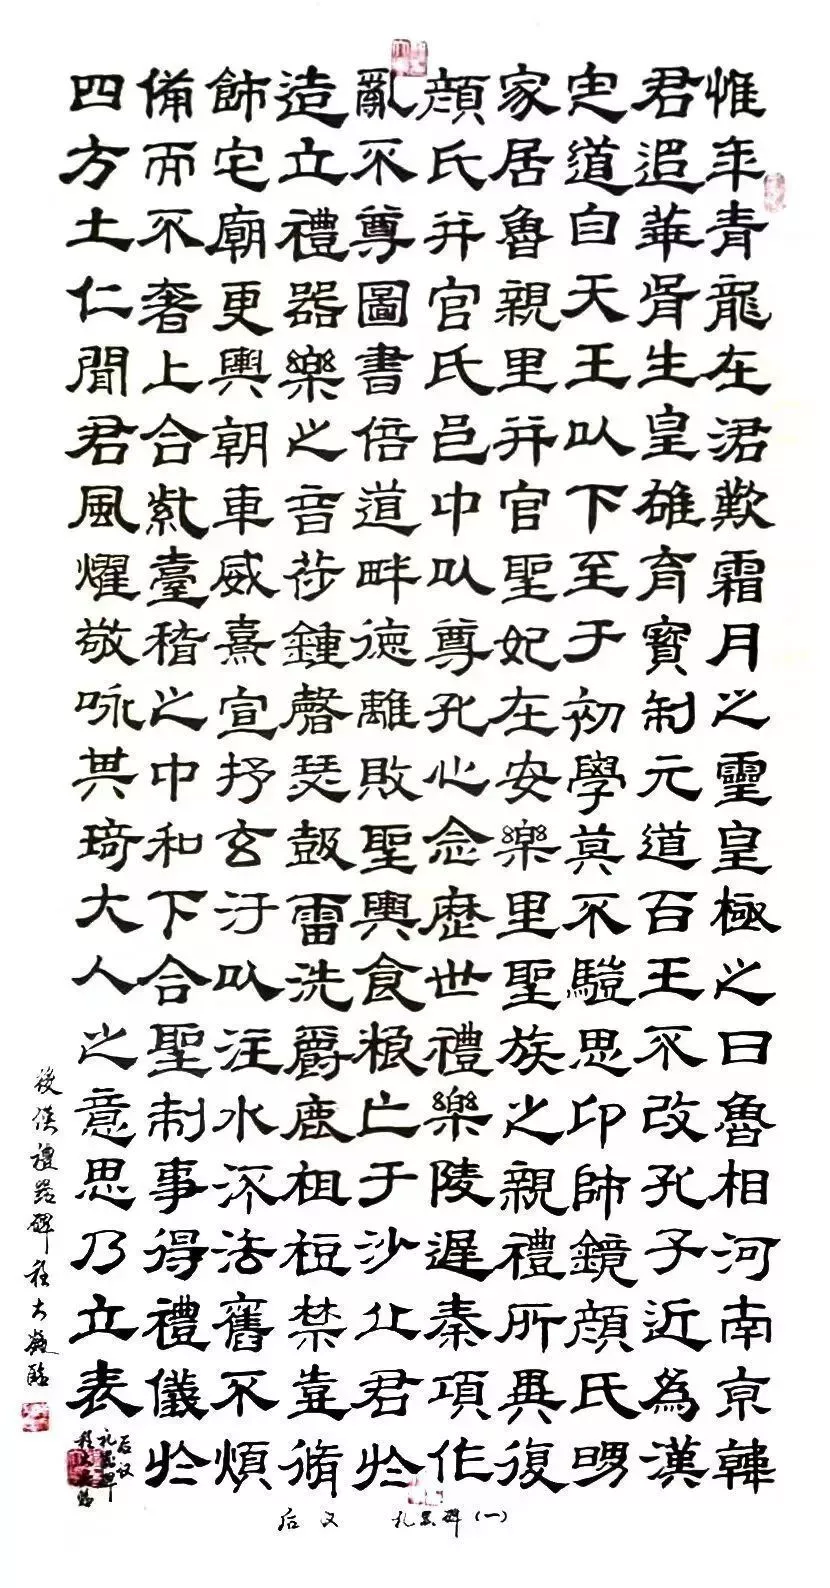 惟年青龍在涒歎霜月之靈皇極之日魯相河南京韓
君追華胥生皇雄育寶制元道百王不改孔子近為漢
定道自天王以下至于初學莫不驥思卬師鏡顏氏舅
家居魯親里并官聖妃在安樂里聖族之親禮所異復
顏氏并官氏邑中以尊孔心念歷世禮樂陵遲秦項作
亂不尊圖書倍道畔德離敗聖輿食糧亡于沙丘君於
造立禮器樂之音苻鍾磬瑟鼓雷洗爵鹿柤梪禁壺脩
飾宅廟更輿朝車威熹宣抒玄汙以注水流法舊不煩
備而不奢上合紫臺稽之中和下合聖制事得禮儀於
四方土仁聞君風燿敬咏其琦大人之意思乃立表
後漢禮器碑程大臨
后汉
礼器碑
后汉 礼器碑（一）